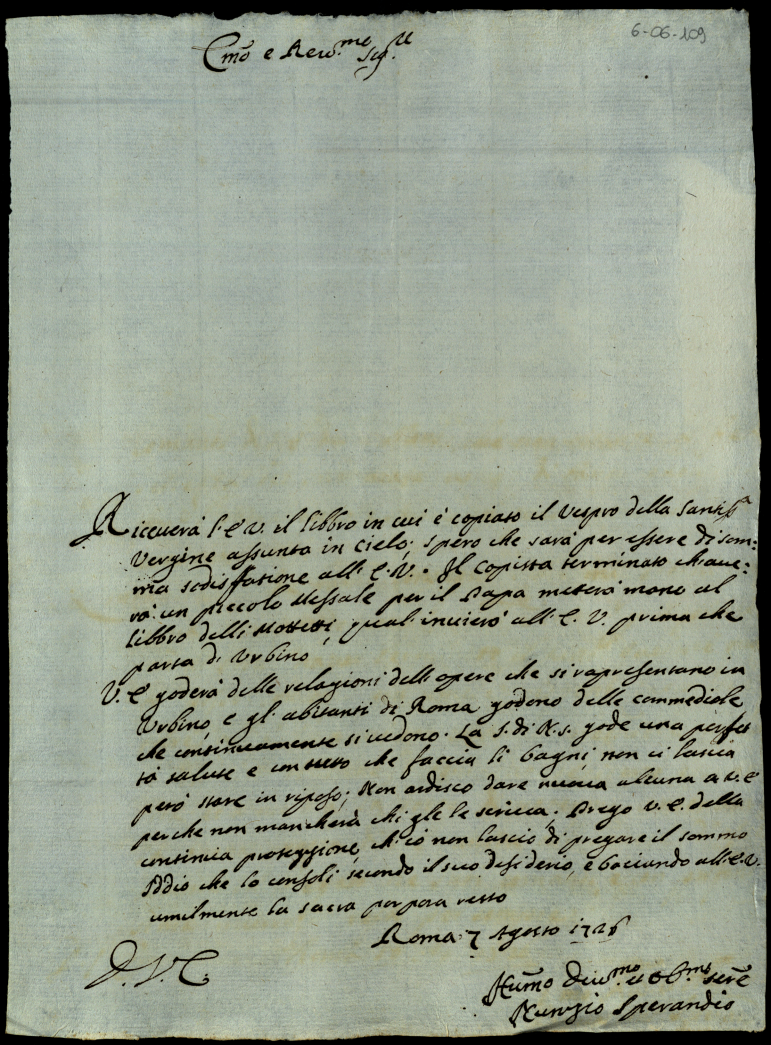 6-06-109
Emo e Reu.mo Sig.re
Riceuerà l. E V. il libbro in cui è copiato il Vespro della Santissa
Vergine assunta in Cielo; spero che sarà per essere di som:
ma sodisfatione all. E. V. Il Copista terminato ch aue:
rà un piccolo Messale per il Papa metterà mano al
libbro delli Mottetti, quali inuierò all. E. V. prima che
parta di Vrbino
V. E goderà delle relagioni dell opere che si rapresentano in
Vrbino, e gl abitanti di Roma godono delle commediole
che continuamente si uedono. La S. di N. S. gode una perfet
ta salute e con tutto che faccia li bagni non ci lascia
però stare in riposo; Non ardisco dare nuoua alcuna a V. E
perche non mancherà chi gle le scriua; Prego V. E. della
continua proteggione, ch io non lascio di pregare il sommo
Iddio che lo consoli secondo il suo desiderio, e baciando all. E. V.
umilmente la sacra porpora resto
Roma 7 Agosto 1726
D. V. E.
Humo Deu.mo et Obl.mo serre
Nunzio Sperandio